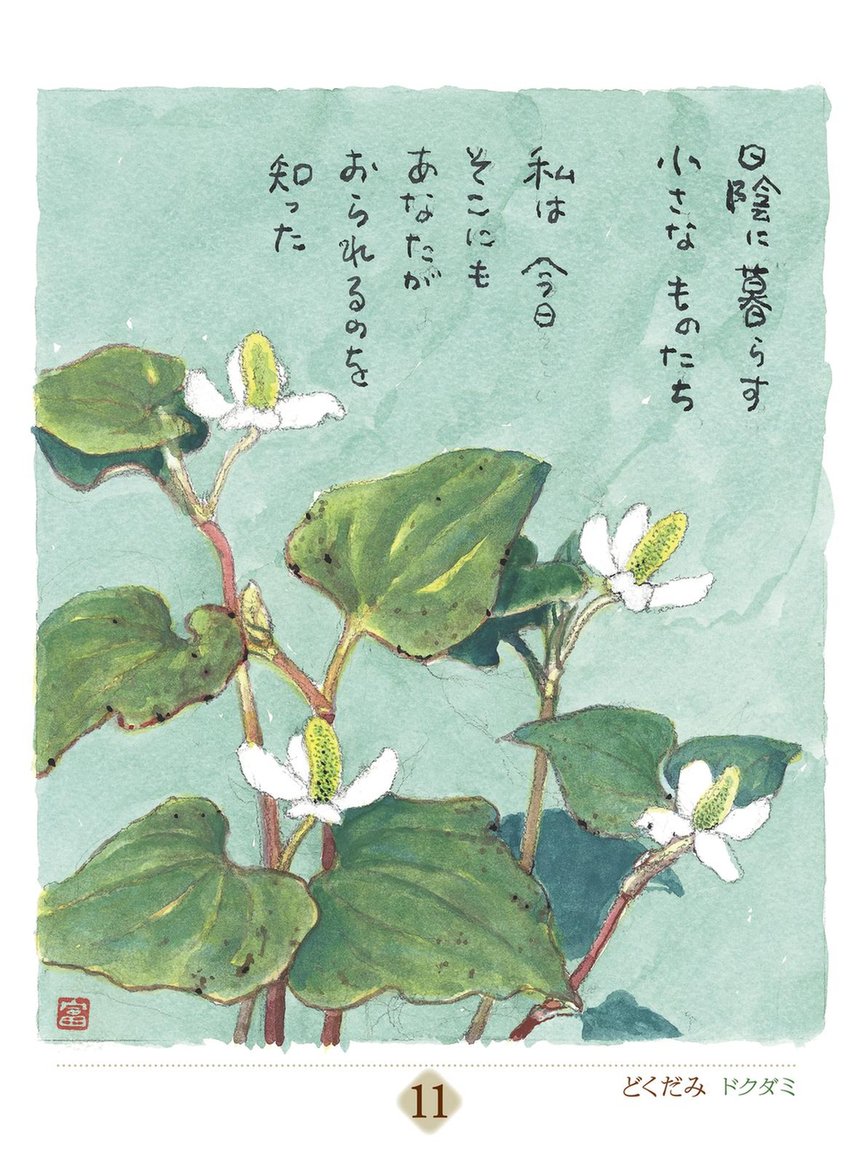 日陰に暮らす
小さな ものたち
私は 今日
そこにも
あなたが
おられるのを
知った
富
11
どくだみ ドクダミ